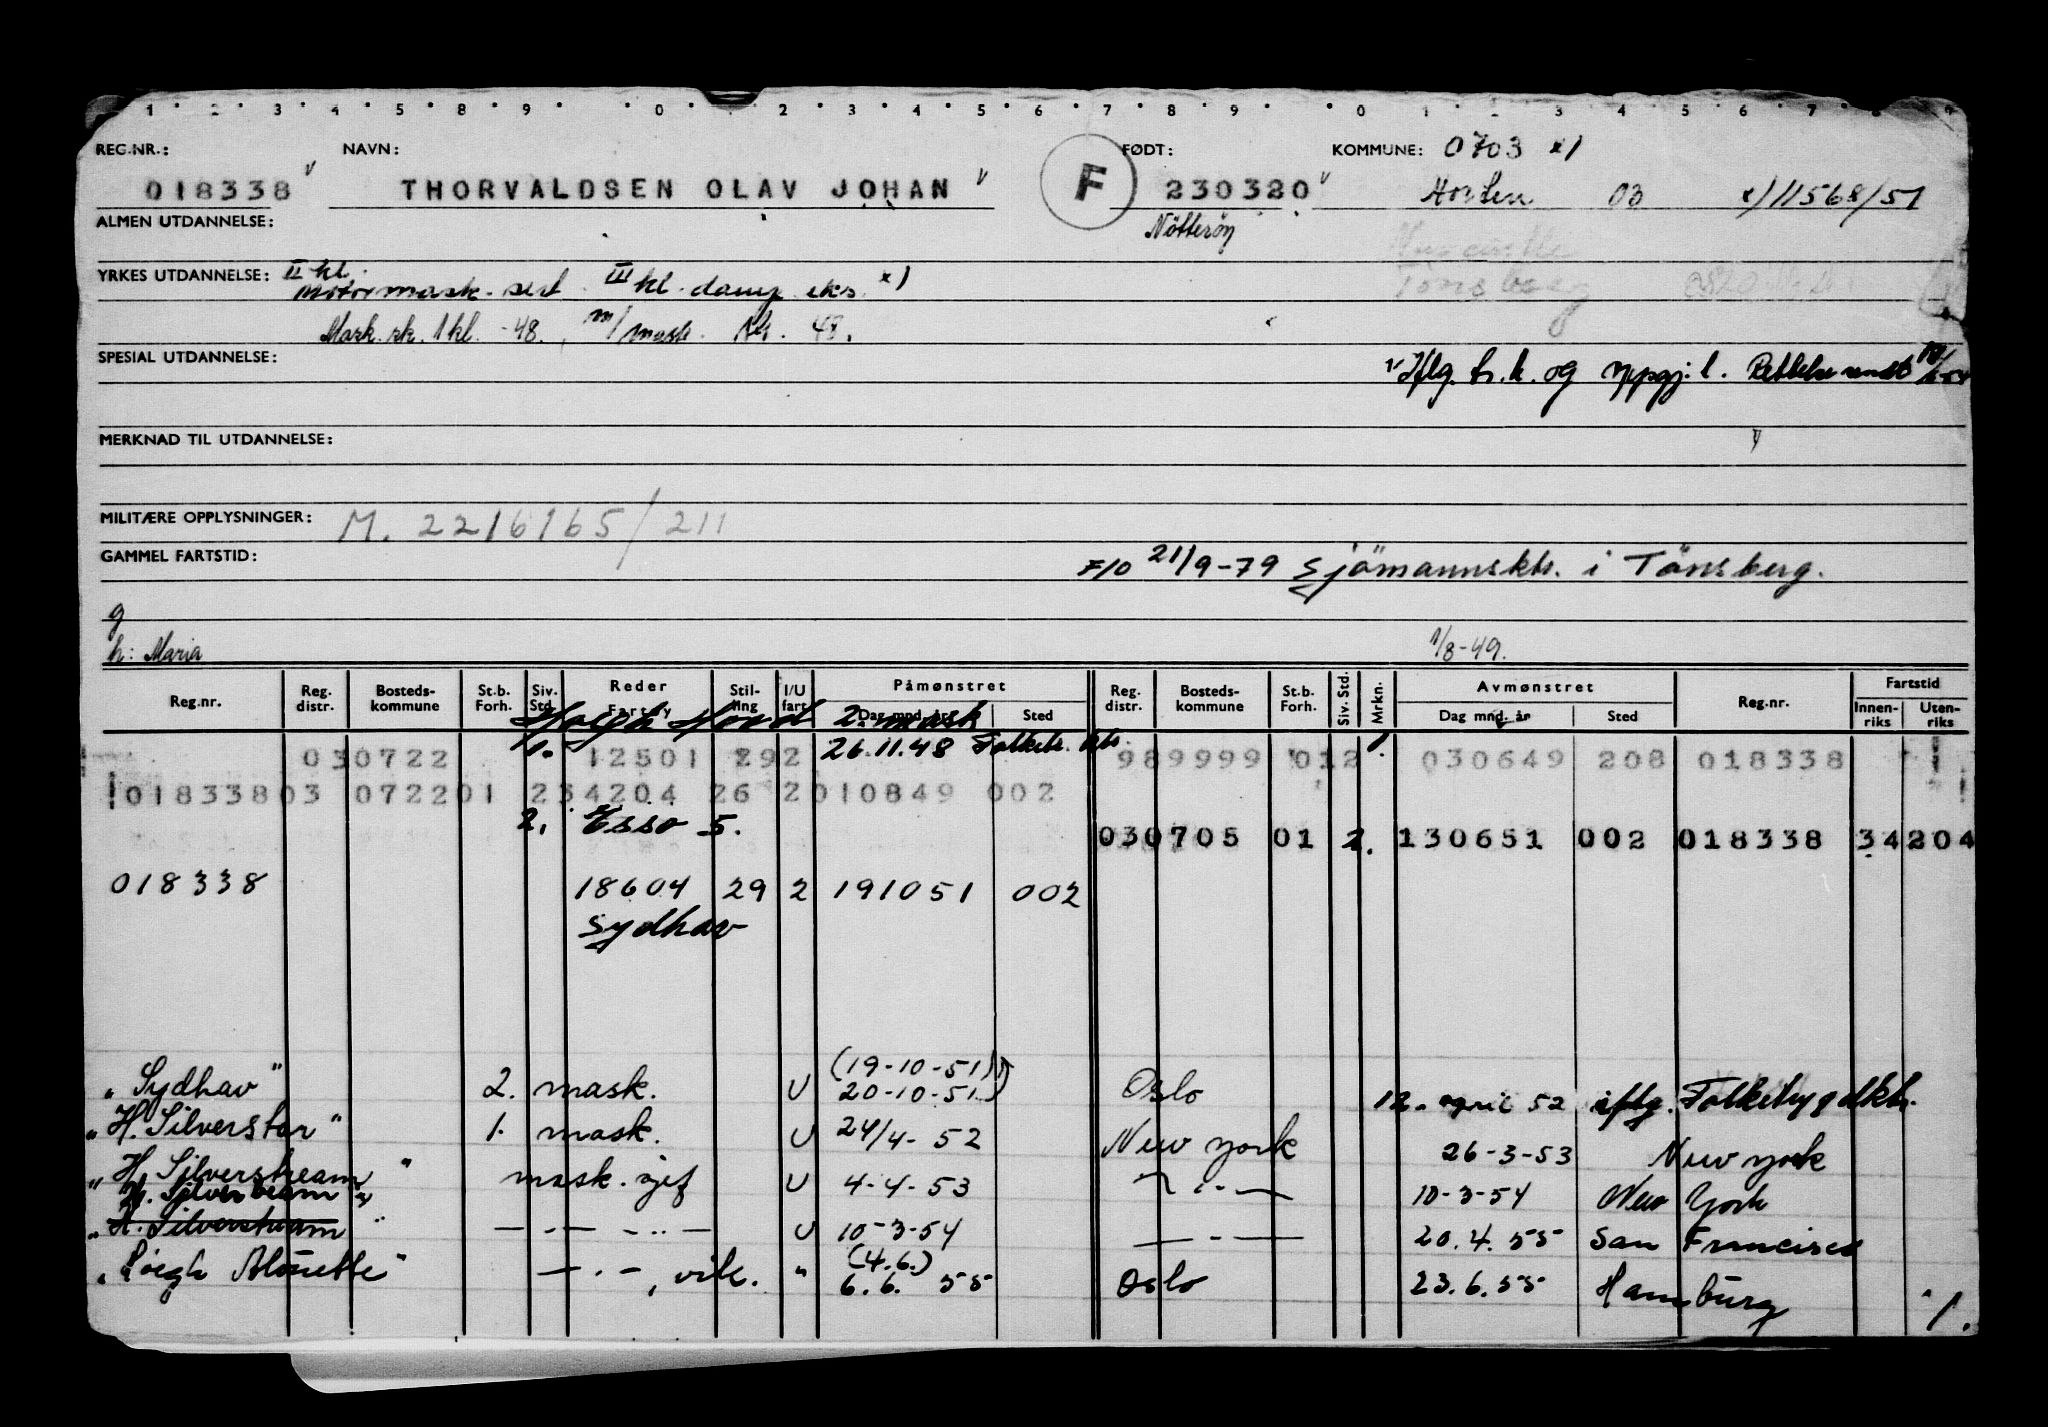 1 2 3 4 5 8 9 0 2 3 4 5 6 7 8 9 0 1 2 3 4 5 6 7
REG.NR.: NAVN: FØDT: KOMMUNE: 0703 x1
018338 THORVALDSEN OLAV JOHAN F 230320 Horten 03 x) 11568/51
ALMEN UTDANNELSE: Nötteröy
YRKES UTDANNELSE: II kl. motormask. sert. III kl. damp eks. x)
Tønsberg
Mask. sk. 1 kl. -48. m/mask. 48.
SPESIAL UTDANNELSE:
MERKNAD TIL UTDANNELSE:
MILITÆRE OPPLYSNINGER: M. 2216165/211
GAMMEL FARTSTID: F/O 21/9-79 Sjömannskt. i Tönsberg.
g
h: Maria 1/8-49.
Reg.nr. Reg. distr. Bosteds- kommune St.b. Forh. Siv. Std. Reder Fartøy Stil- ling I/U fart Påmønstret Dag mnd. år Sted Reg. distr. Bosteds- kommune St.b. Forh. Siv. Std. Mrkn. Avmønstret Dag mnd. år Sted Reg.nr. Fartstid Innen- riks Uten- riks
2. mask
030722 1. 12501 292 26.11.48 989999 012 1. 030649 208 018338
018338 03 0722 01 234204 26 2 010849 002
2. Esso 5.
030705 01 2. 130651 002 018338 34 204
018338 18604 29 2 191051 002
Sydhav
"Sydhav" 2. mask. U (19-10-51) 20-10-51 Oslo 12. april 52 iflg. Folketrygdkt.
"H. Silverstar" 1. mask. U 24/4-52 New York 26-3-53 New York
"H. Silverstream" mask.sjef U 4-4-53 —"— 10-3-54 New York
"H. Silverbeam"
"H. Silverstream" —"— U 10-3-54 —"— 20.4.55 San Francisco
"Höegh Alouette" —"—, vik. " (4.6.) 6.6.55 Oslo 23.6.55 Hamburg 1.